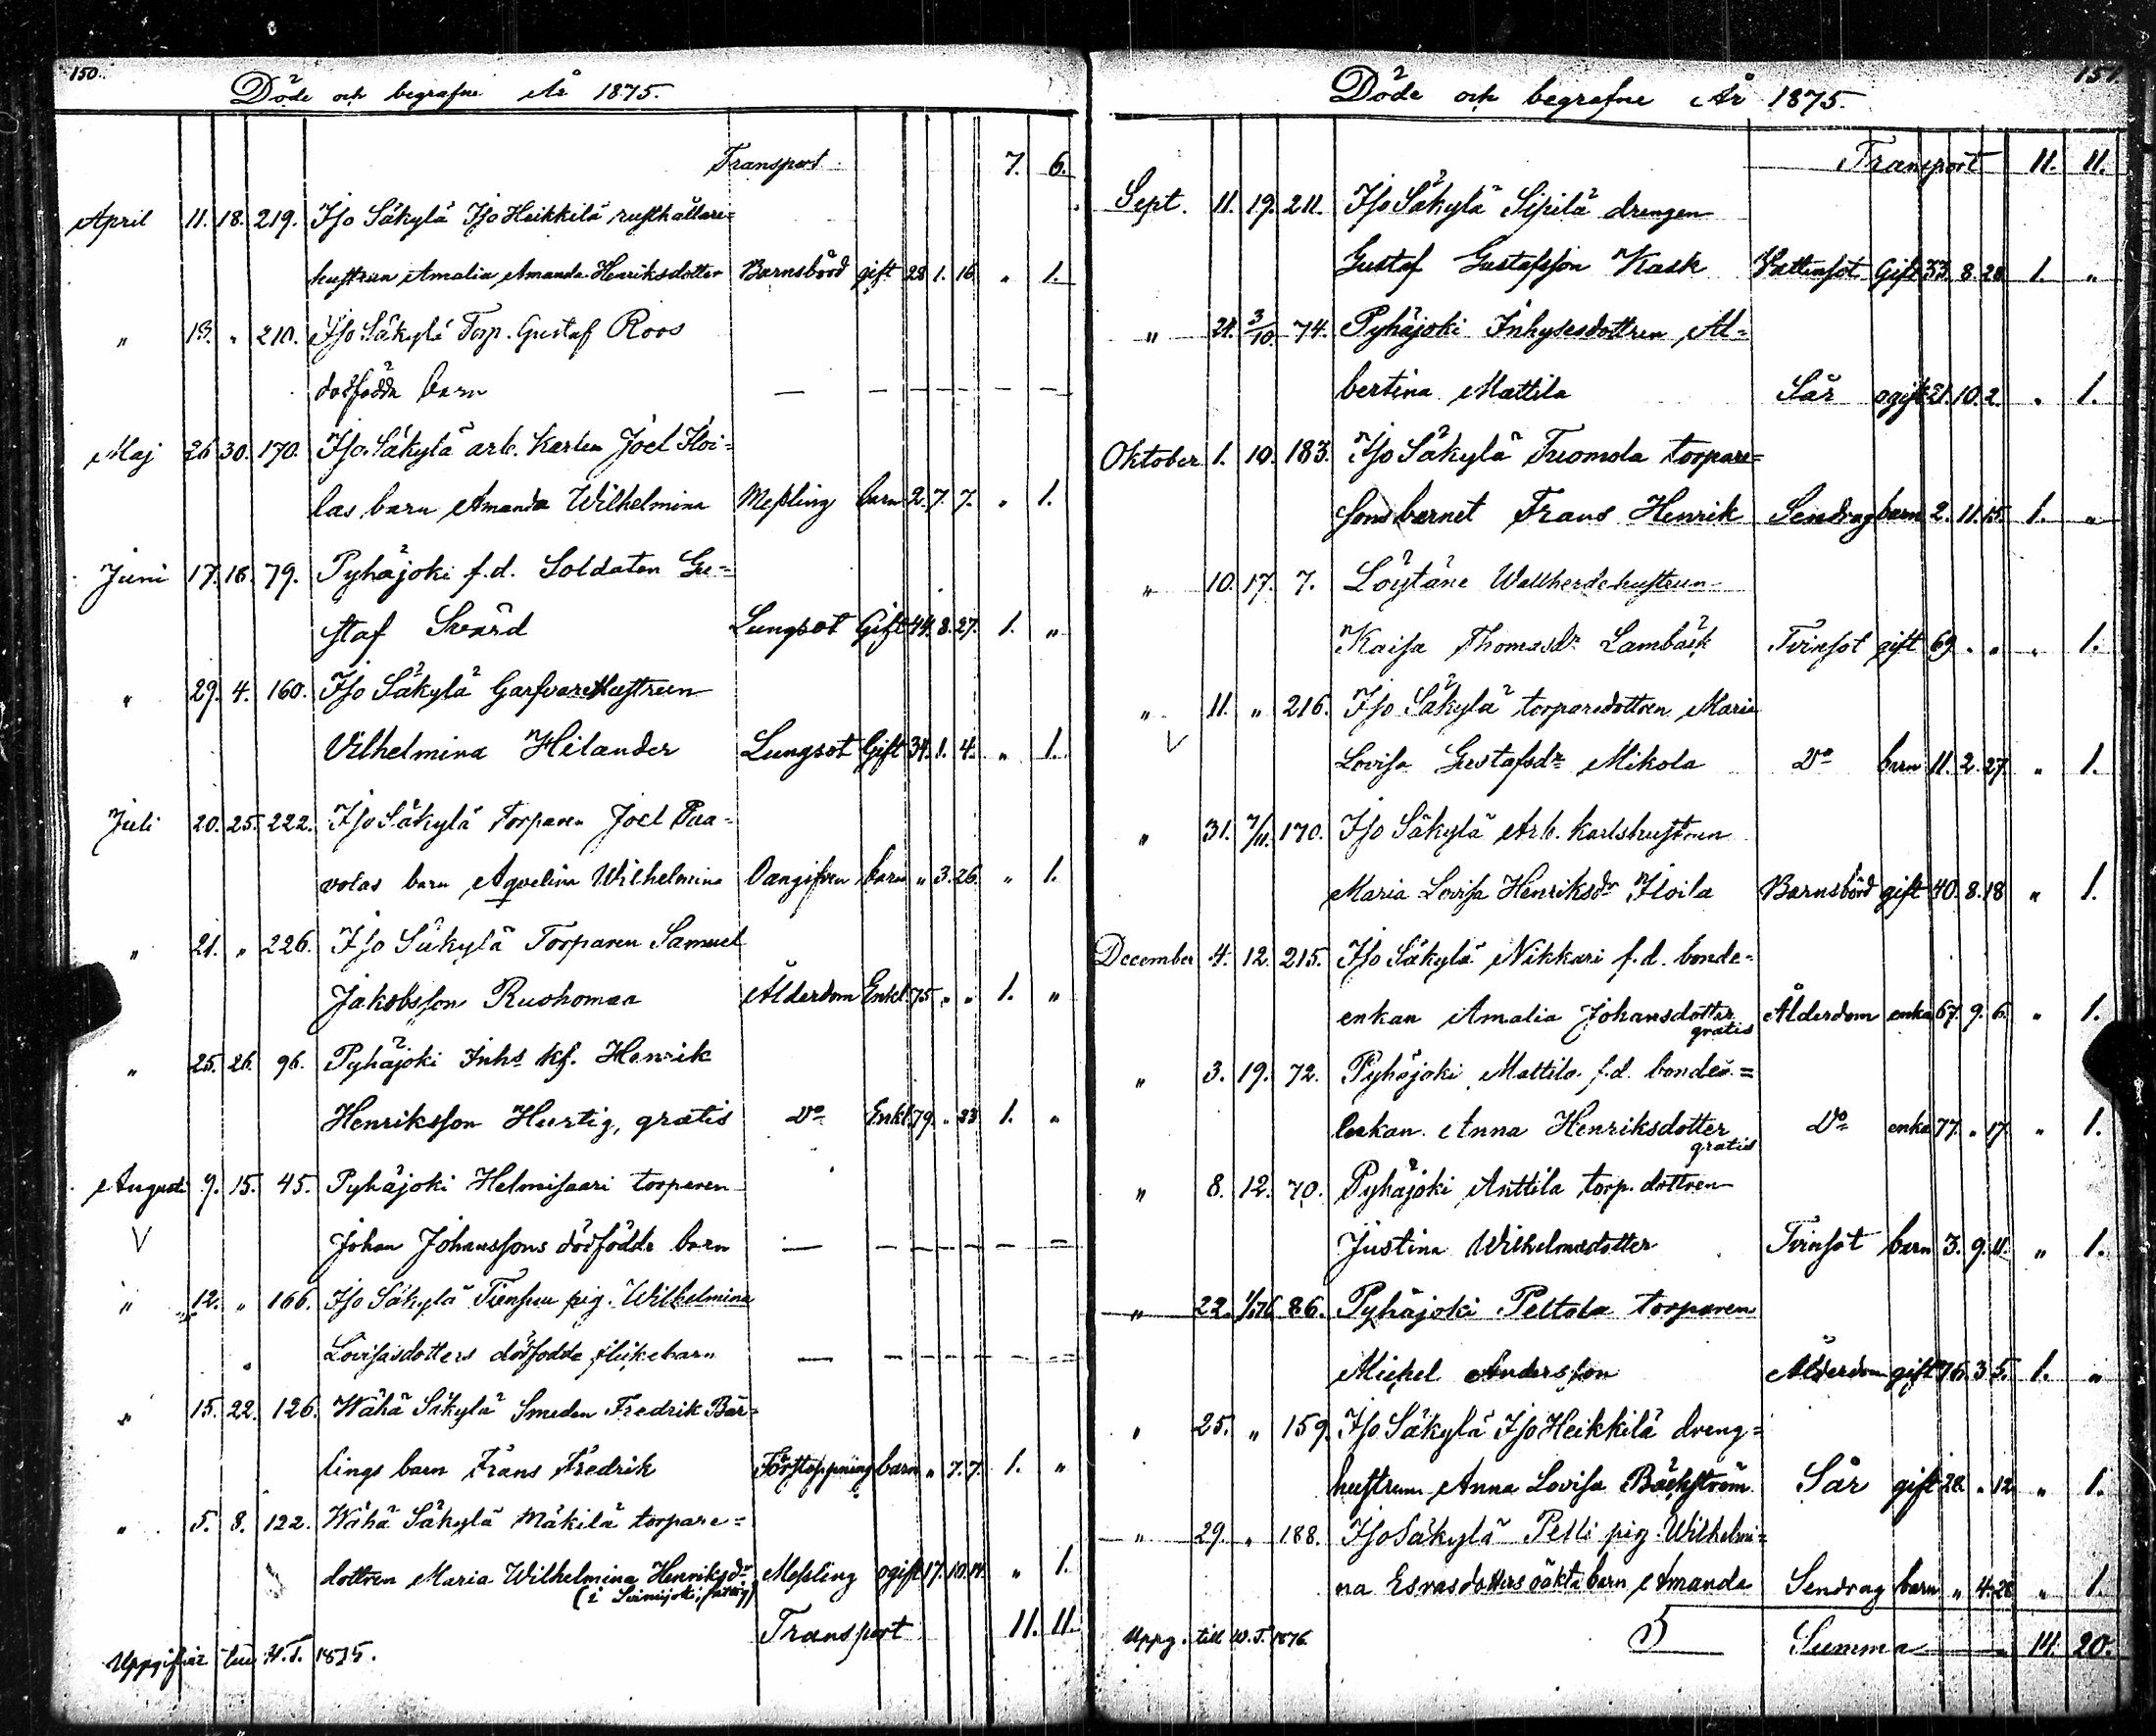 150.
Döde och begrafne År 1875.
Transport 7. 6.
April 11. 18. 219. Iso Säkylä Iso Heikkilä rusthållare=
hustrun Amalia Amanda Henriksdotter Barnsbörd gift 28 1. 16 " 1.
" 13. " 210. Iso Säkylä Torp. Gustaf Roos
dödfödda barn — — — — — — —
Maj 26 30. 170. Iso Säkylä arb. karlen Joel Iloi=
las barn Amanda Wilhelmina Meßling barn 2. 7. 7. " 1.
Juni 17. 18. 79. Pyhäjoki f.d. Soldaten Gu=
staf Svärd Lungsot Gift 44. 8. 27. 1. "
" 29. 4. 160. Iso Säkylä Garfvarehustrun
Vilhelmina Hilander Lungsot Gift 34. 1. 4. " 1.
Juli 20. 25. 222. Iso Säkylä Torparen Joel Paa=
volas barn Aqvelina Wilhelmina Oangifven barn " 3. 26. " 1.
" 21. " 226. Iso Säkylä Torparen Samuel
Jakobsson Ruohomaa Ålderdom Enkl. 75 " " 1. "
" 25. 26. 96. Pyhäjoki Inhs kf. Henrik
Henriksson Hurtig, gratis Do Enkl. 79. " 23 1. "
Augusti 9. 15. 45. Pyhäjoki Helmisaari torparen
V Johan Johanssons dödfödde barn — — — — — — —
" 12. " 166. Iso Säkylä Tensuu pig. Wilhelmina
" Lovisasdotters dödfodda flickebarn — — — — — — —
" 15. 22. 126. Wähä Säkylä Smeden Fredrik Bär=
lings barn Frans Fredrik Förstoppning barn " 7. 7. 1. "
" 5. 8. 122. Wähä Säkylä Mäkilä torpare=
dottren Maria Wilhelmina Henriksdr Meßling ogift 17. 10. 14. " 1.
Transport 11. 11.
Uppgifvit till W.T. 1875.
151.
Döde och begrafne År 1875.
Transport 11. 11.
Sept. 11. 19. 211. Iso Säkylä Sipilä drengen
Gustaf Gustafsson Kask Vattensot Gift 33. 8. 28 1. "
" 21. 3/10. 74. Pyhäjoki Inhysesdottren Al=
bertina Mattila Sår ogift 21. 10. 2. " 1.
Oktober 1. 10. 183. Iso Säkylä Tuomola torpare=
sons barnet Frans Henrik Sendrag barn 2. 11. 15. 1. "
" 10. 17. 7. Löytäne Wallherdehustrun
Kaisa Thomasdr Lambäck Tvinsot gift 69 " " " 1.
" 11. " 216. Iso Säkylä torparedottren Maria
V Lovisa Gustafsdr Mikola Do barn 11. 2. 27. " 1.
" 31. 7/11. 170. Iso Säkylä Arb. karlshustrun
Maria Lovisa Henriksdr Iloila Barnsbörd gift 40. 8. 18 " 1.
December 4. 12. 215. Iso Säkylä Nikkari f.d. bonde=
enkan Amalia Johansdotter Ålderdom enka 67. 9. 6. " 1.
gratis
" 3. 19. 72. Pyhäjoki Mattila f.d. bonde=
enkan Anna Henriksdotter Do enka 77. " 17 " 1.
gratis
" 8. 12. 70. Pyhäjoki Anttila torp. dottren
Justina Wilhelmsdotter Tvinsot barn 3. 9. 11. " 1.
" 22. 1/1 76 86. Pyhäjoki Peltola torparen
Michel Andersson Ålderdom gift 76. 3 5. 1. "
" 25. " 159. Iso Säkylä Iso Heikkilä dreng=
hustrun Anna Lovisa Bäckström Sår gift 28. " 12 " 1.
" 29. " 188. Iso Säkylä Pelli pig. Wilhelmi=
na Esrasdotters oäkta barn Amanda Sendrag barn " 4. 28 " 1.
Uppg. till W.T. 1876. Summa 14. 20.